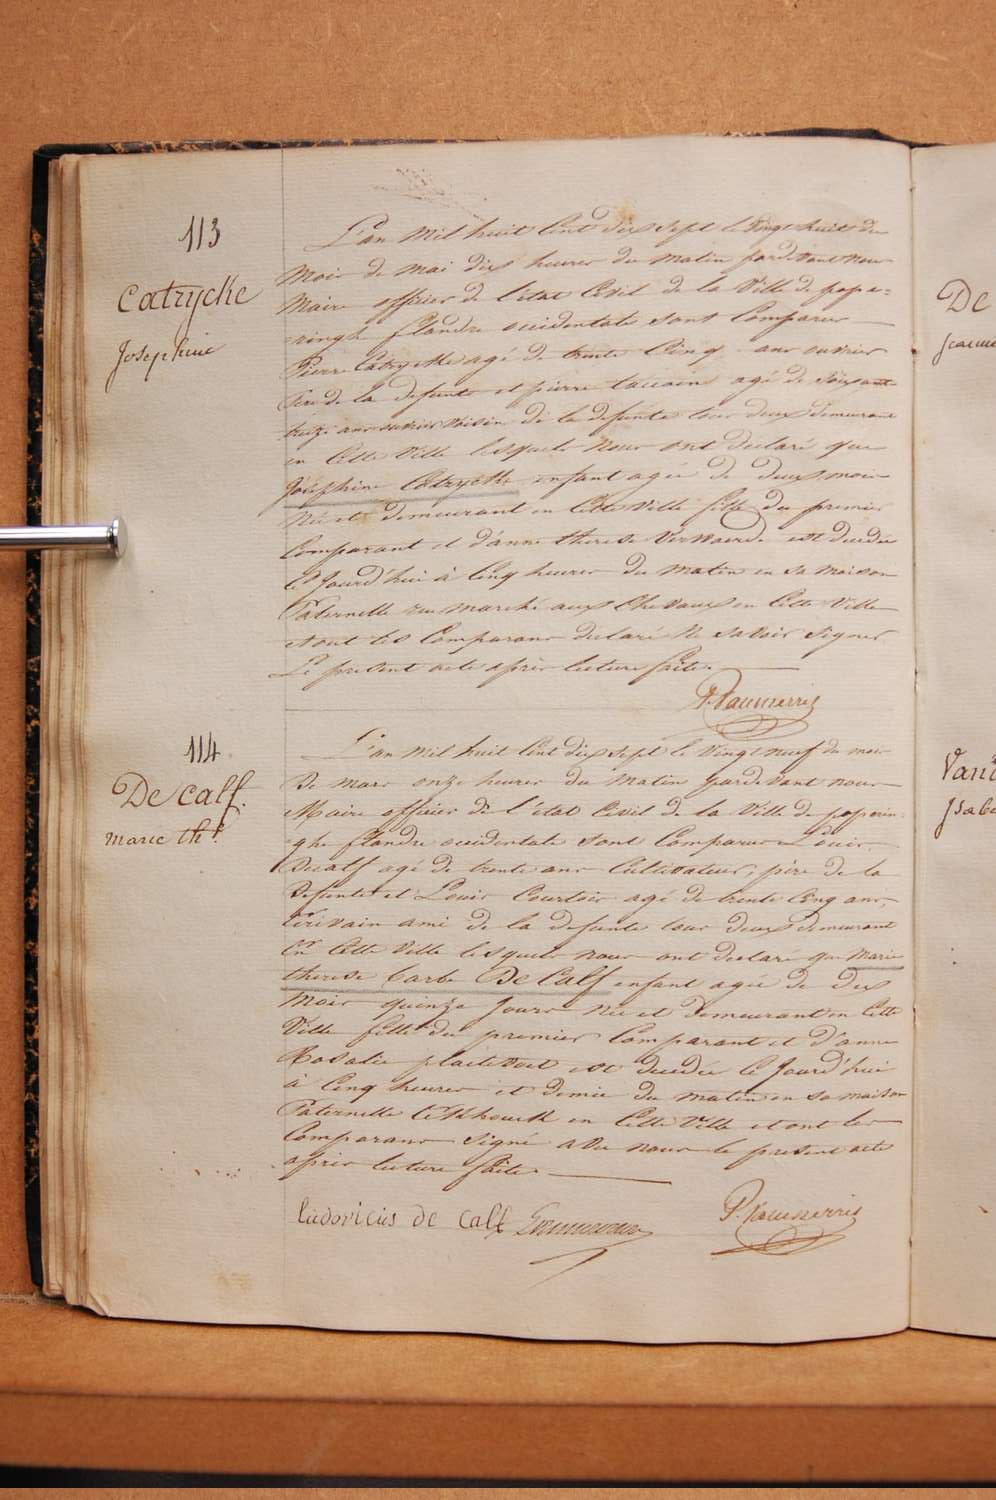 113
Catrycke
Josephine
L'an mil huit Cent dix sept le vingt huit du
mois de mai dix heures du matin pardevant nous
Maire officier de l'état Civil de la Ville de pope=
ringh flandre occidentale sont Comparus
Pierre Catrycke agé de trente Cinq ans ouvrier
Pere de la defunte et pierre agé de Soixante
treize ans ouvrier voisin de la defunte tous deux demeurant
en Cette Ville lesquels Nous ont declaré que
Joséphine Catrycke enfant agée de deux mois
Née et demeurant en Cette Ville fille du premier
Comparant et d'anne therese est decedée
le Jourd'hui à Cinq heures du matin en sa maison
Paternelle rue marché aux Chevaux en Cette Ville
et ont les Comparans declaré Ne savoir signer
Le present acte après lecture faite.
114
De Calf.
marie th.e
L'an mil huit Cent dix sept le vingt neuf du mois
de mars onze heures du matin pardevant nous
Maire officier de l'état Civil de la Ville de poperin=
ghe flandre occidentale sont Comparus Louis
Decalf agé de trente ans Cultivateur, père de la
defunte et Louis Courtois agé de trente Cinq ans,
Ecrivain ami de la defunte tous deux demeurant
En Cette Ville lesquels nous ont declaré que Marie
therese barbe De Calf enfant agée de dix
Mois quinze Jours Née et demeurant en Cette
Ville fille du premier Comparant et d'anne
Rosalie est decedée le Jourd'hui
à Cinq heures et demie du matin en sa maison
Paternelle en Cette Ville et ont les
Comparans signé avec nous le present acte
après lecture faite.
Ludovicus de Calf
De
Jeanne